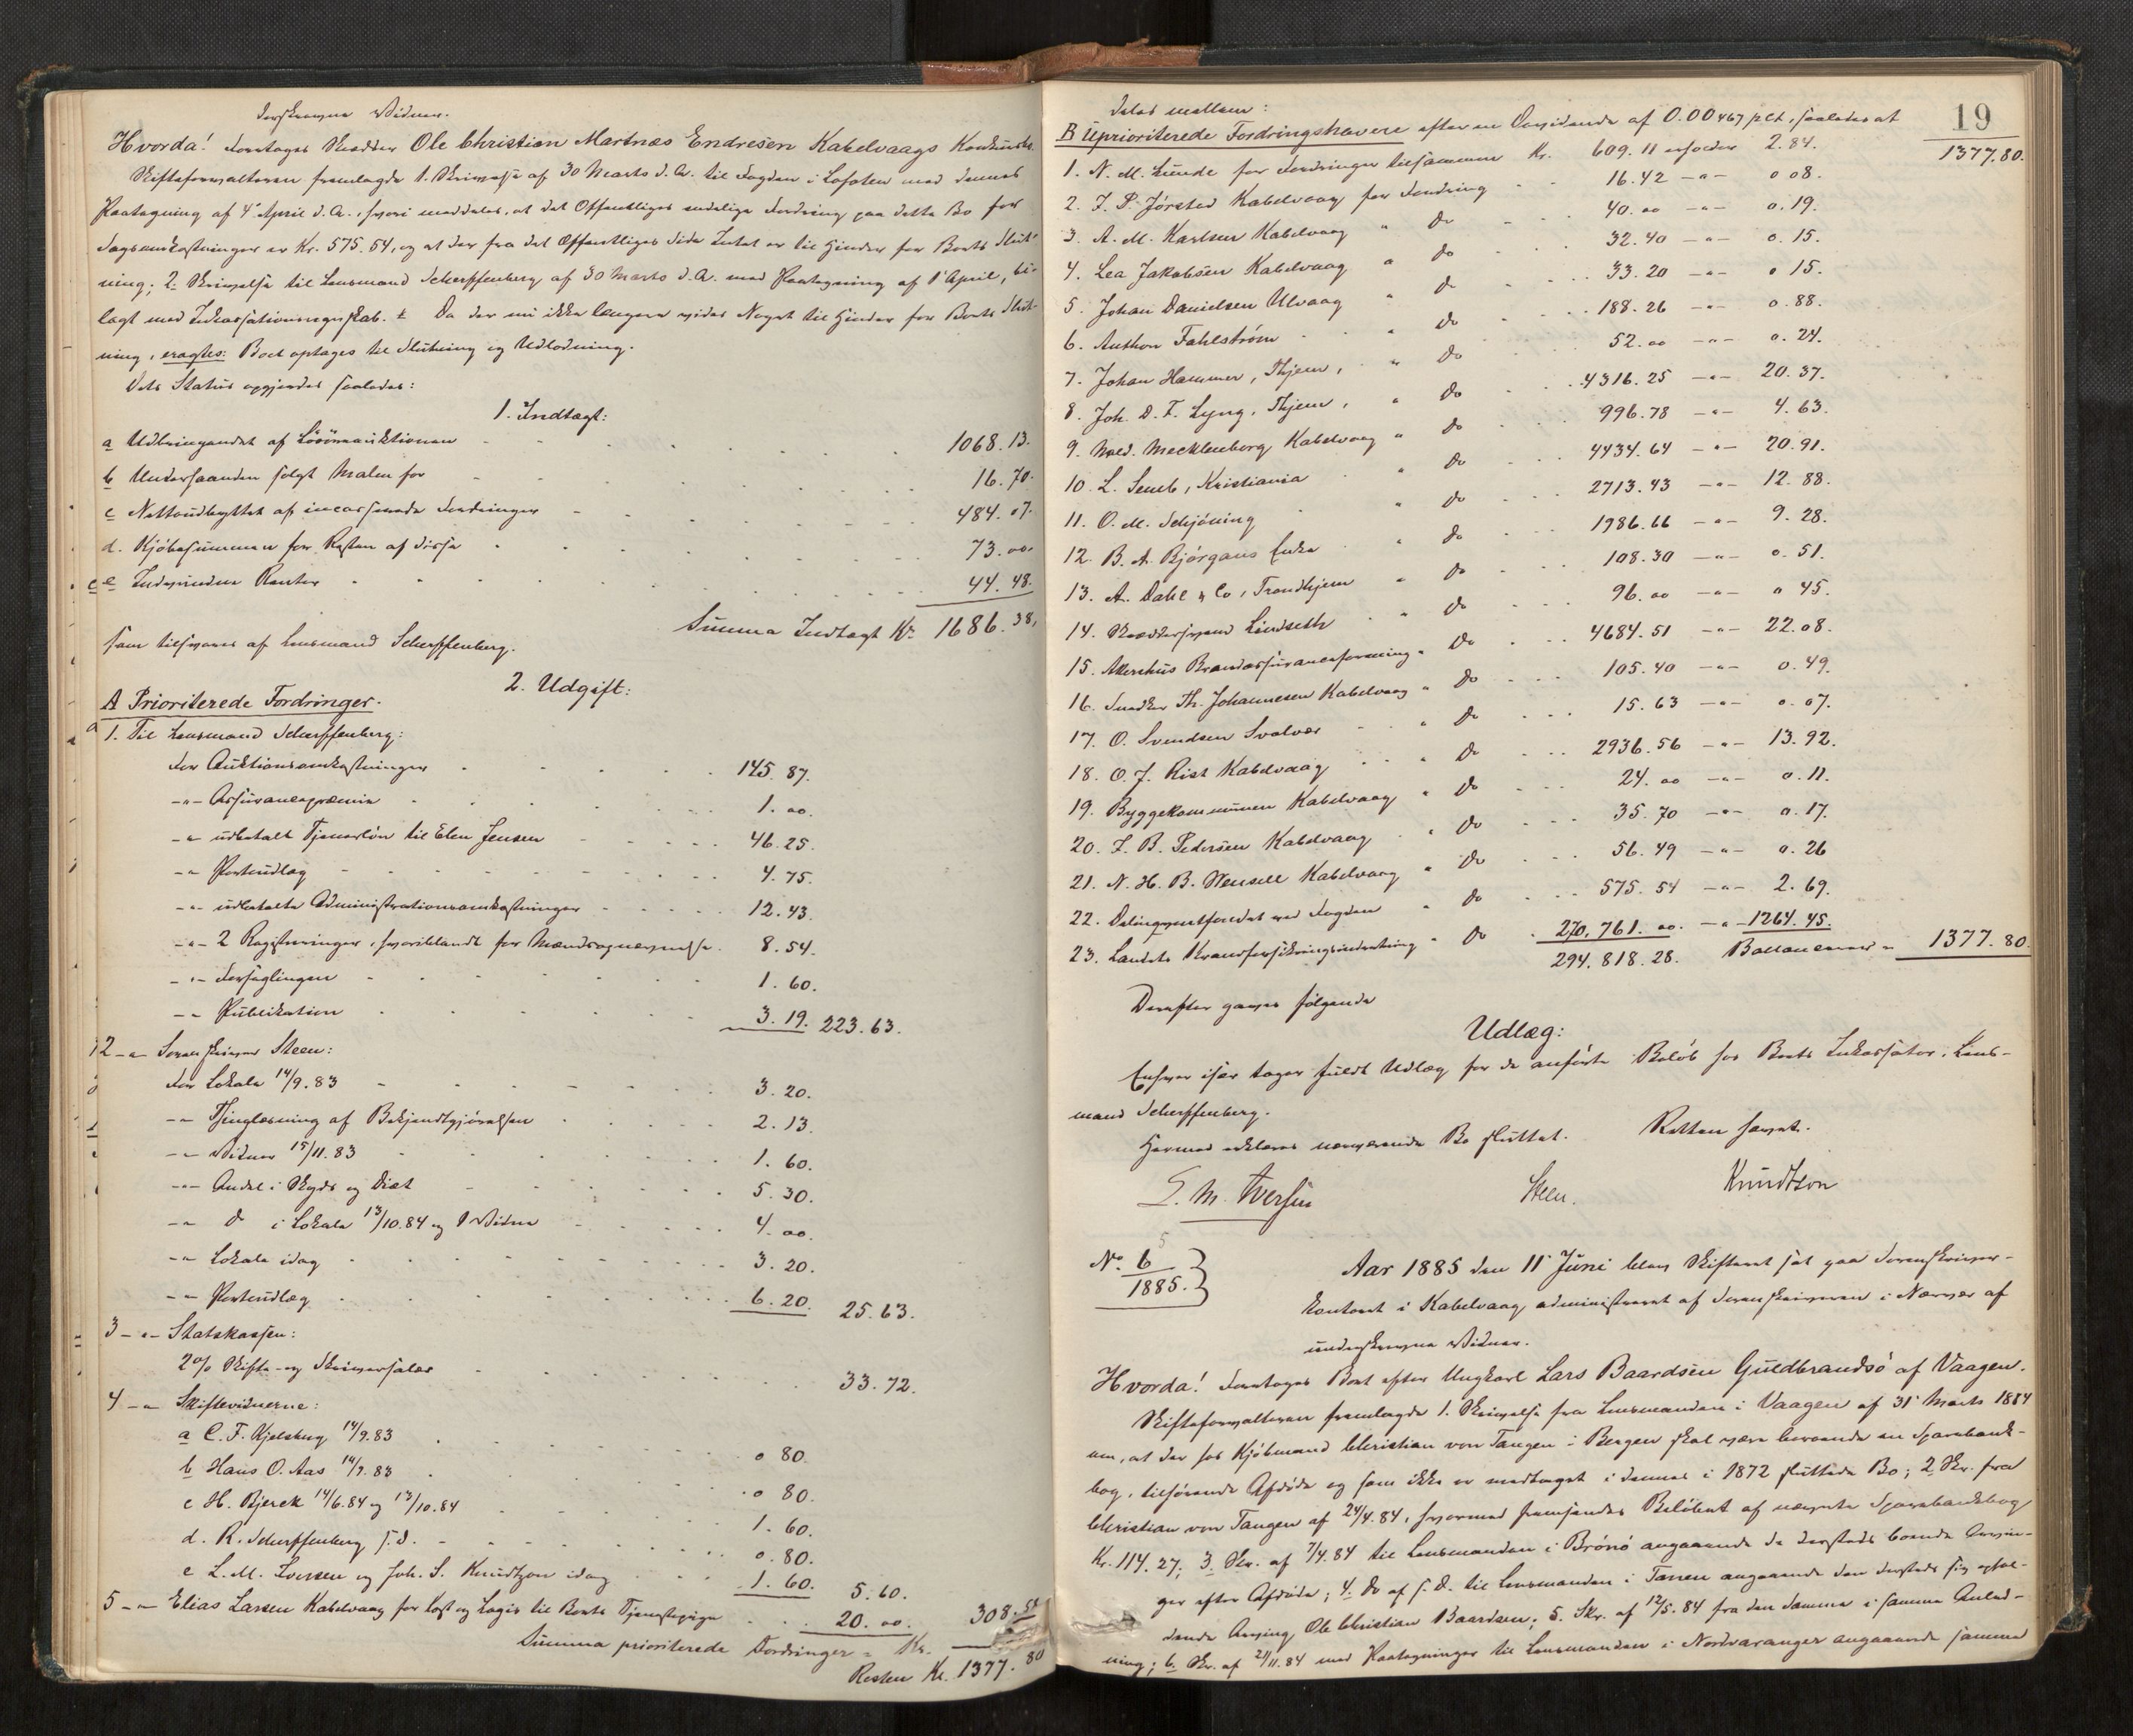 underskrevne Vidner.
Hvorda! Foretoges Skrædder Ole Christian Martnæs Endresen Kabelvaags Konkursbo.
Skifteforvalteren fremlagde 1. Skrivelse af 30 Marts d.A. til Fogden i Lofoten med dennes
Paategning af 4 April d.A., hvori meddeles, at det Offentliges endelige Fordring paa dette Bo for
Sagsomkostninger er Kr. 575.54, og at der fra det Offentliges Side Intet er til Hinder for Boets Slut-
ning; 2. Skrivelse til Lensmand Scherffenberg af 30 Marts d.A. med Paategning af 1 April, bi-
lagt med Inkassationsregnskab. Da der nu ikke længere vides Noget til Hinder for Boets Slut-
ning, eragtes: Boet optages til Slutning og Udlodning.
Dets Status opgjordes saaledes:
1. Indtægt:
a Udbringendet af Løsøreauktionen 1068.13.
b Underhaanden solgt Malm for 16.70.
c Nettoudbyttet af incasserede Fordringer 484.07.
d. Kjøbesummen for Resten af disse 73.00.
e Indvundne Renter 44.48.
Summa Indtægt Kr. 1686.38,
som tilsvares af Lensmand Scherffenberg.
2. Udgift:
A Prioriterede Fordringer.
1. Til Lensmand Scherffenberg:
For Auktionsomkostninger 145.87.
-"- Assurancepræmie 1.00.
-"- udbetalt Tjenerløn til Elen Jensen 46.25.
-"- Portoudlæg 4.75.
-"- udbetalte Administrationsomkostninger 12.43.
-"- 2 Registreringer, hvoriblandt for Mændsopnævnelse 8.54.
-"- Forseglingen 1.60.
-"- Publikation 3.19. 223.63.
2 -"- Sorenskriver Steen:
For Lokale 14/9.83 3.20.
-"- Thinglæsning af Bekjendtgjørelsen 2.13.
-"- Vidner 15/11.83 1.60.
-"- Andel i Skyds og Diæt 5.30.
-"- Do i Lokale 13/10.84 og 1 Vidne 4.00.
-"- Lokale idag 3.20.
-"- Portoudlæg 6.20. 25.63.
3 -"- Statskassen:
2% Skifte- og Skriversalær 33.72.
4 -"- Skiftevidnerne:
a C. F. Kjelsberg 14/9.83 0 80.
b Hans O. Aas 14/9.83 0 80.
c H. Bjerck 14/6.84 og 13/10.84 1.60.
d. R. Scherffenberg s.D. 0.80.
e L. M. Iversen og Joh. S. Knudtzon idag 1.60. 5.60.
5 -"- Elias Larsen Kabelvaag for Kost og Logis til Boets Tjenestepige 20.00. 308.58
Summa prioriterede Fordringer = Kr.
Resten Kr. 1377.80
19
deles mellem:
B Uprioriterede Fordringshavere efter en Dividende af 0.00467 pCt, saaledes at 1377.80.
1. N. M. Lunde for Fordringer tilsammen Kr. 609.11 erholder 2.84.
2. J. P. Jørsted Kabelvaag for Fordring 16.42 -"- 0 08.
3. A. M. Karlsen Kabelvaag " Do 40.00 -"- 0.19.
4. Lea Jakobsen Kabelvaag " Do 32.40 -"- 0.15.
5. Johan Danielsen Ulvaag " Do 33.20 -"- 0 15.
6. Anthon Fahlstrøm " Do 188.26 -"- 0.88.
7. Johan Hammer, Thjem, " Do 52.00 -"- 0.24.
8. Joh. D. F. Lyng, Thjem, " Do 4316.25 -"- 20.37.
9. Wold. Mecklenborg Kabelvaag " Do 996.78 -"- 4.63.
10. L. Semb, Kristiania " Do 4434.64 -"- 20.91.
11. O. M. Schjöning " Do 2713.43 -"- 12.88.
12. B. A. Bjørgans Enke " Do 1986.66 -"- 9.28.
13. A. Dahl & Co, Trondhjem " Do 108.30 -"- 0.51.
14. Skræddersvend Lindseth " Do 96.00 -"- 0 45.
15. Akershus Brandassuranceforening " Do 4684.51 -"- 22.08.
16. Snedker Th. Johannesen Kabelvaag " Do 105.40 -"- 0.49.
17. O. Svendsen Svolvær " Do 15.63 -"- 0.07.
18. O. J. Rist Kabelvaag " Do 2936.56 -"- 13.92.
19. Byggekommunen Kabelvaag " Do 24.00 -"- 0.11.
20. J. B. Pedersen Kabelvaag " Do 35.70 -"- 0.17.
21. N. H. B. Wensell Kabelvaag " Do 56.49 -"- 0.26
22. Delinqventfondet ved Fogden " Do 575.54 -"- 2.69.
23. Landets Brandforsikringsindretning " Do 270,761.00. -"- 1264.45.
294.818.28. Ballancerer = 1377.80
Derefter gaves følgende
Udlæg:
Enhver især tager fuldt Udlæg for de anførte Beløb hos Boets Inkassator, Lens-
mand Scherffenberg.
Hermed erklæres nærværende Bo sluttet. Retten hævet.
L. M. Iversen Steen. Knudtzon
No. 6 5
1885.
Aar 1885 den 11 Juni blev Skifteret sat paa Sorenskriver-
kontoret i Kabelvaag administreret af Sorenskriveren i Nærvær af
underskrevne Vidner.
Hvorda! Foretoges Boet efter Ungkarl Lars Baardsen Guldbrandsø af Vaagen.
Skifteforvalteren fremlagde 1. Skrivelse fra Lensmanden i Vaagen af 31 Marts 1884
om, at der hos Kjøbmand Christian von Tangen i Bergen skal være beroende en Sparebank-
bog, tilhørende Afdøde og som ikke er medtaget i dennes i 1872 sluttede Bo; 2. Skr. fra
Christian von Tangen af 24/4.84, hvormed fremsendes Beløbet af nævnte Sparebankbog
Kr. 114.27; 3. Skr. af 7/4.84 til Lensmanden i Brønø angaaende de dersteds boende Arvin-
ger efter Afdøde; 4. Do af s.D. til Lensmanden i Tanen angaaende den dersteds sig ophol-
dende Arving Ole Christian Baardsen; 5. Skr. af 12/5.84 fra den Samme i samme Anled-
ning; 6. Skr. af 21/11.84 med Paategninger til Lensmanden i Nordvaranger angaaende samme